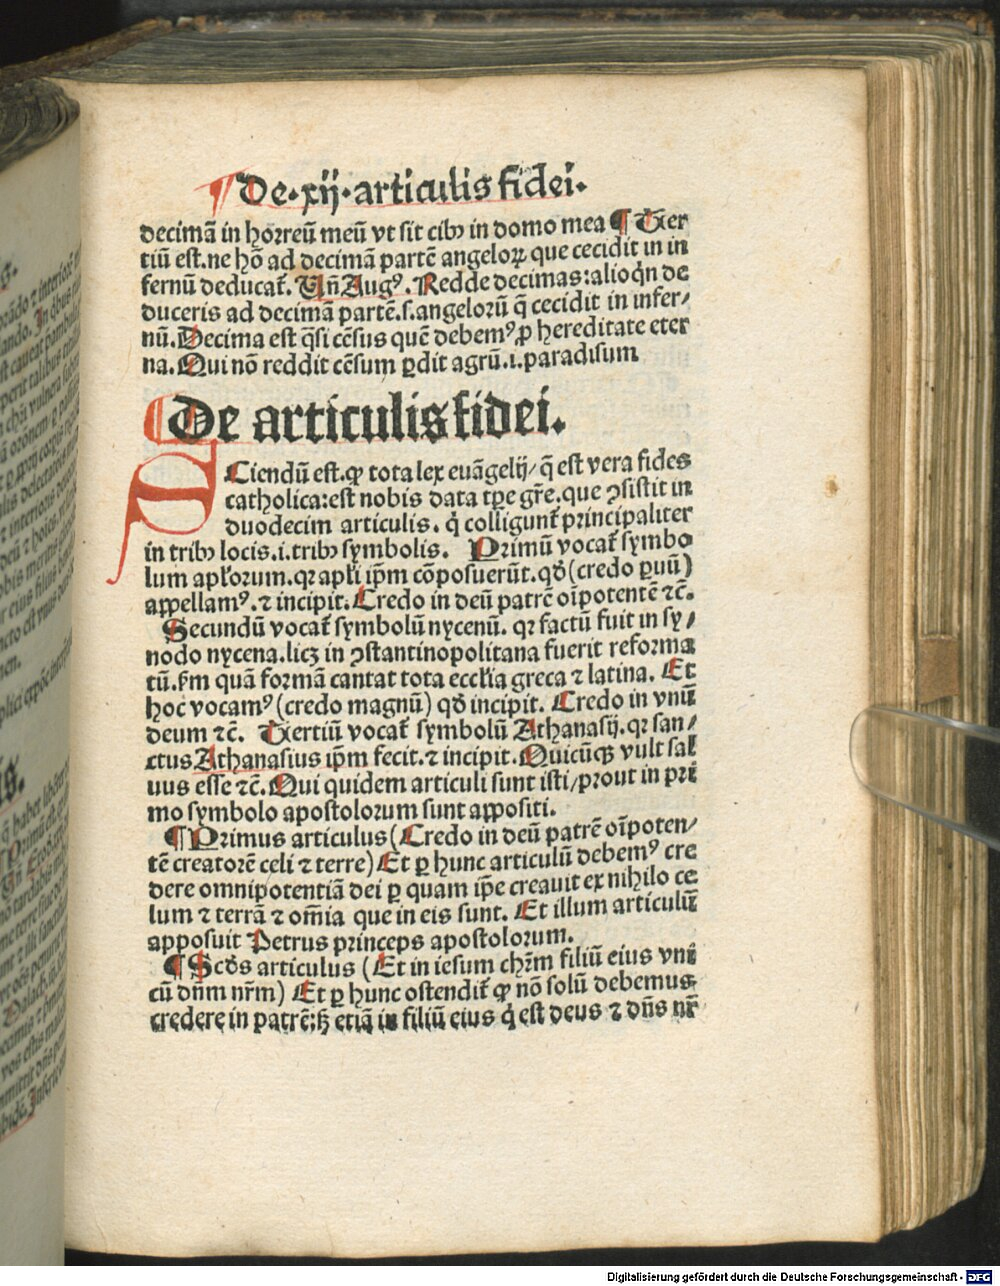 ¶ De·xij·articulis fidei.
decimā in horreū meū vt sit cibꝫ in domo mea ¶ Ter
tiū est.ne hō ad decimā partē angeloꝝ que cecidit in in
fernū deducat᷑. Uñ Augꝰ. Redde decimas:alioqͥn de
duceris ad decimā partē.s.angelorū q̄ cecidit in infer⸗
nū.Decima est qͣsi cēsus quē debemꝰ ꝓ hereditate eter
na. Qui nō reddit cēsum ꝑdit agrū.i.paradisum
De articulis fidei.
SCiendū est.ꝙ tota lex euāgelij/ q̄ est vera fides
catholica:est nobis data tꝑe gr̄e.que ꝯsistit in
duodecim articulis. qͥ colligunt᷑ principaliter
in tribꝫ locis.i.tribꝫ symbolis. Primū vocat᷑ symbo
lum apl̄orum.qꝛ apl̄i ip̄m cōposuerūt.qd̄ (credo ꝑuū)
appellamꝰ.⁊ incipit.Credo in deū patrē oīpotentē ⁊c̄.
Secundū vocat᷑ symbolū nycenū. qꝛ factū fuit in sy⸗
nodo nycena.licꝫ in ꝯstantinopolitana fuerit reforma
tū.ẜm quā formā cantat tota eccl̄ia greca ⁊ latina. Et
hoc vocamꝰ (credo magnū) qd̄ incipit. Credo in vnū
deum ⁊c̄. Tertiū vocat᷑ symbolū Athanasij. qꝛ san⸗
ctus Athanasius ip̄m fecit.⁊ incipit.Quicūqꝫ vult sal
uus esse ⁊c̄.Qui quidem articuli sunt isti/prout in pri
mo symbolo apostolorum sunt appositi.
¶ Primus articulus (Credo in deū patrē oīpoten⸗
tē creatorē celi ⁊ terre) Et ꝑ hunc articulū debemꝰ cre
dere omnipotentiā dei ꝑ quam ip̄e creauit ex nihilo ce
lum ⁊ terrā ⁊ om̄ia que in eis sunt. Et illum articulū
apposuit Petrus princeps apostolorum.
¶ Scd̄s articulus (Et in iesum chr̄m filiū eius vni
cū dn̄m nr̄m) Et ꝑ hunc ostendit᷑ ꝙ nō solū debemus
credere in patrē:ꝫ etiā in filiū eius qͥ est deus ⁊ dn̄s nr̄
Digitalisierung gefördert durch die Deutsche Forschungsgemeinschaft - DFG